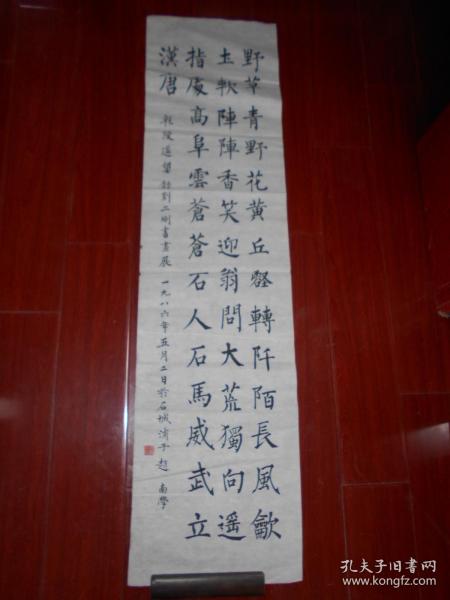 野草青野花黄丘壑轉阡陌長風歙
土軟陣陣香笑迎翁問大荒獨向遥
指處高阜雲蒼蒼石人石馬威武立
漢唐
乾陵遥望 劉二刚書畫展 一九八六年五月二日於石城 趙 南學
孔夫子旧书网
www.kongfz.com